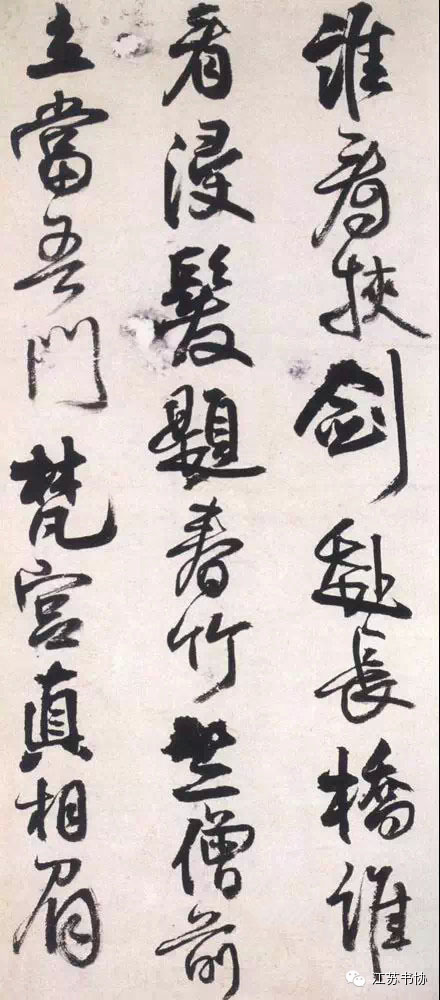 誰看挾劍赴長橋誰
看浸髮題春竹僧前
立當吾門梵宮真相眉
江苏书协